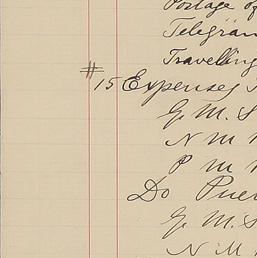 Postage of
Telegram
Travelling
#15 Expenses
G. M. S
N M
P M
Do Puer
G. M. S
N. M.